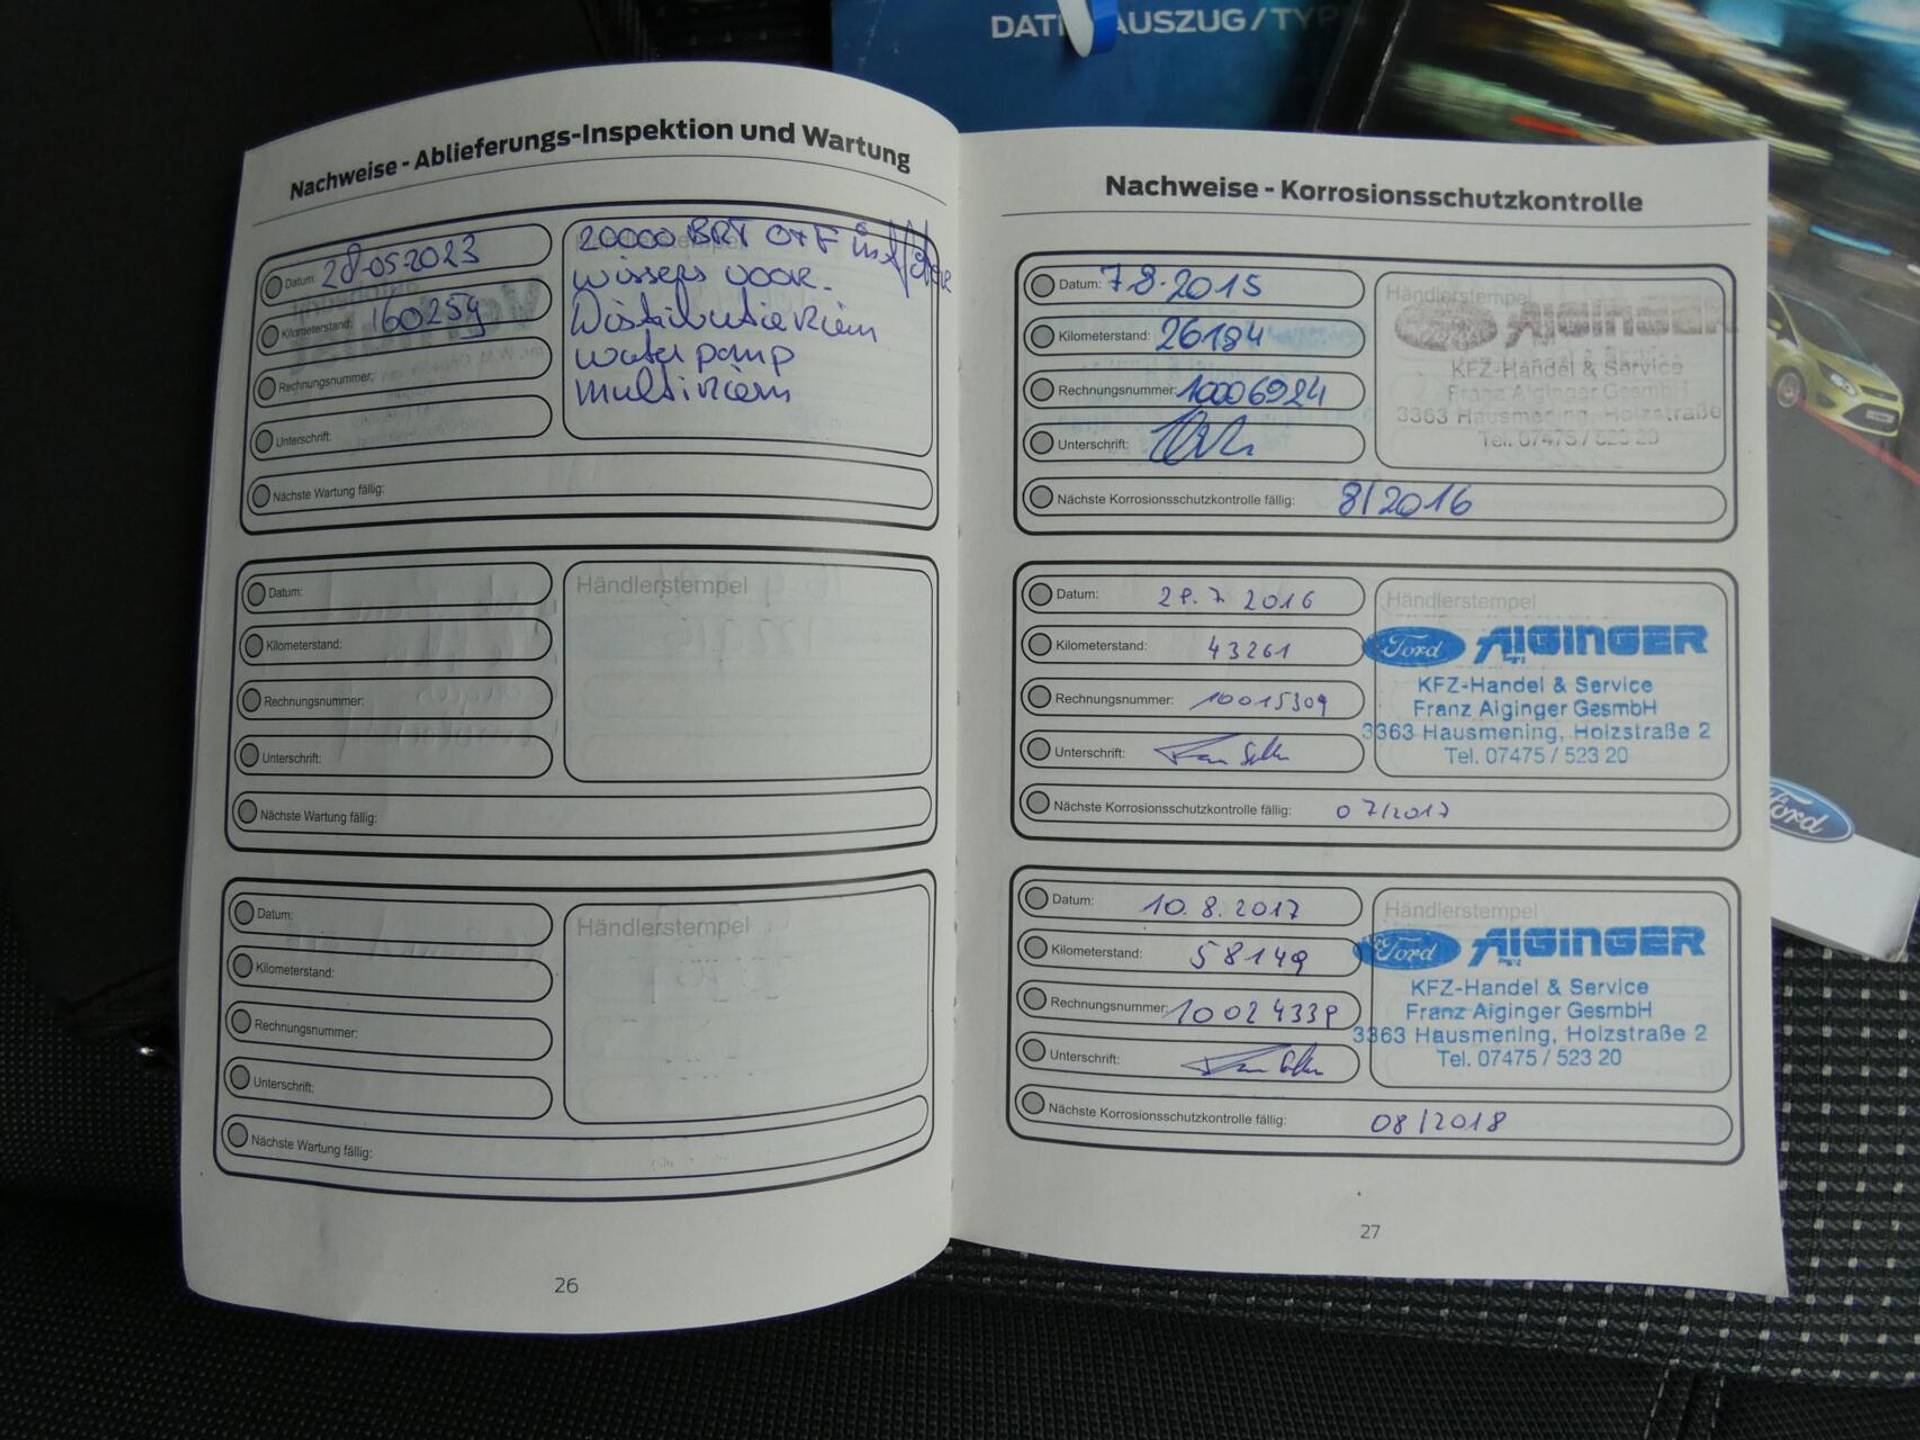 Nachweise - Ablieferungs-Inspektion und Wartung
Datum: 28-05-2023
Kilometerstand: 160259
Rechnungsnummer:
Unterschrift:
Nächste Wartung fällig:
20000 BRT
wissers voor.
Distributieriem
waterpomp
multiriem
Datum:
Kilometerstand:
Rechnungsnummer:
Unterschrift:
Nächste Wartung fällig:
Händlerstempel
Datum:
Kilometerstand:
Rechnungsnummer:
Unterschrift:
Nächste Wartung fällig:
Händlerstempel
26
Nachweise - Korrosionsschutzkontrolle
Datum: 7.8.2015
Kilometerstand: 26184
Rechnungsnummer: 10006924
Unterschrift:
Nächste Korrosionsschutzkontrolle fällig: 8/2016
Händlerstempel
AIGINGER
KFZ-Handel & Service
Franz Aiginger GesmbH
3363 Hausmening, Holzstraße
Tel. 07475 / 523 20
Datum: 28.7.2016
Kilometerstand: 43261
Rechnungsnummer: 10015309
Unterschrift:
Nächste Korrosionsschutzkontrolle fällig: 07/2017
Händlerstempel
Ford AIGINGER
KFZ-Handel & Service
Franz Aiginger GesmbH
3363 Hausmening, Holzstraße 2
Tel. 07475 / 523 20
Datum: 10.8.2017
Kilometerstand: 58149
Rechnungsnummer: 10024338
Unterschrift:
Nächste Korrosionsschutzkontrolle fällig: 08/2018
Händlerstempel
Ford AIGINGER
KFZ-Handel & Service
Franz Aiginger GesmbH
3363 Hausmening, Holzstraße 2
Tel. 07475 / 523 20
27
Ford